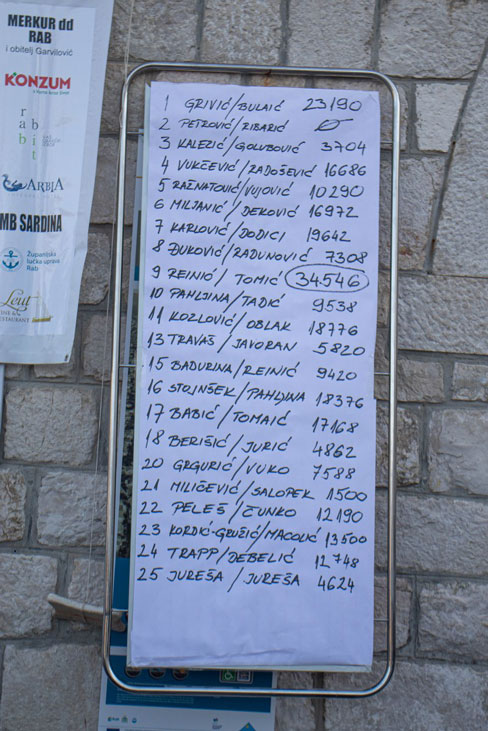 MERKUR dd
RAB
i obitelj Garvilović
KONZUM
rab
bit
ARBIA
MB SARDINA
Županijska
lučka uprava
Rab
Leut
1 GRIVIĆ/BULAIĆ 23190
2 PETROVIĆ/RIBARIĆ Ø
3 KALEZIĆ/GOLUBOVIĆ 3704
4 VUKČEVIĆ/RADOŠEVIĆ 16686
5 RAŽNATOVIĆ/VUJOVIĆ 10290
6 MILJANIĆ/DEKOVIĆ 16972
7 KARLOVIĆ/DODICI 19642
8 ĐUKOVIĆ/RADUNOVIĆ 7308
9 REINIĆ/TOMIĆ 34.546
10 PAHLJINA/TADIĆ 9538
11 KOZLOVIĆ/OBLAK 18776
13 TRAVAŠ/JAVORAN 5820
15 BADURINA/REINIĆ 9420
16 STOJNŠEK/PAHLJINA 18376
17 BABIĆ/TOMAIĆ 17168
18 BERIŠIĆ/JURIĆ 4862
20 GRGURIĆ/VUKO 7588
21 MILIČEVIĆ/SALOPEK 1500
22 PELEŠ/ČUNKO 12190
23 KORDIĆ-GRUŽIĆ/MACOLIĆ 13500
24 TRAPP/DEBELIĆ 12748
25 JUREŠA/JUREŠA 4624